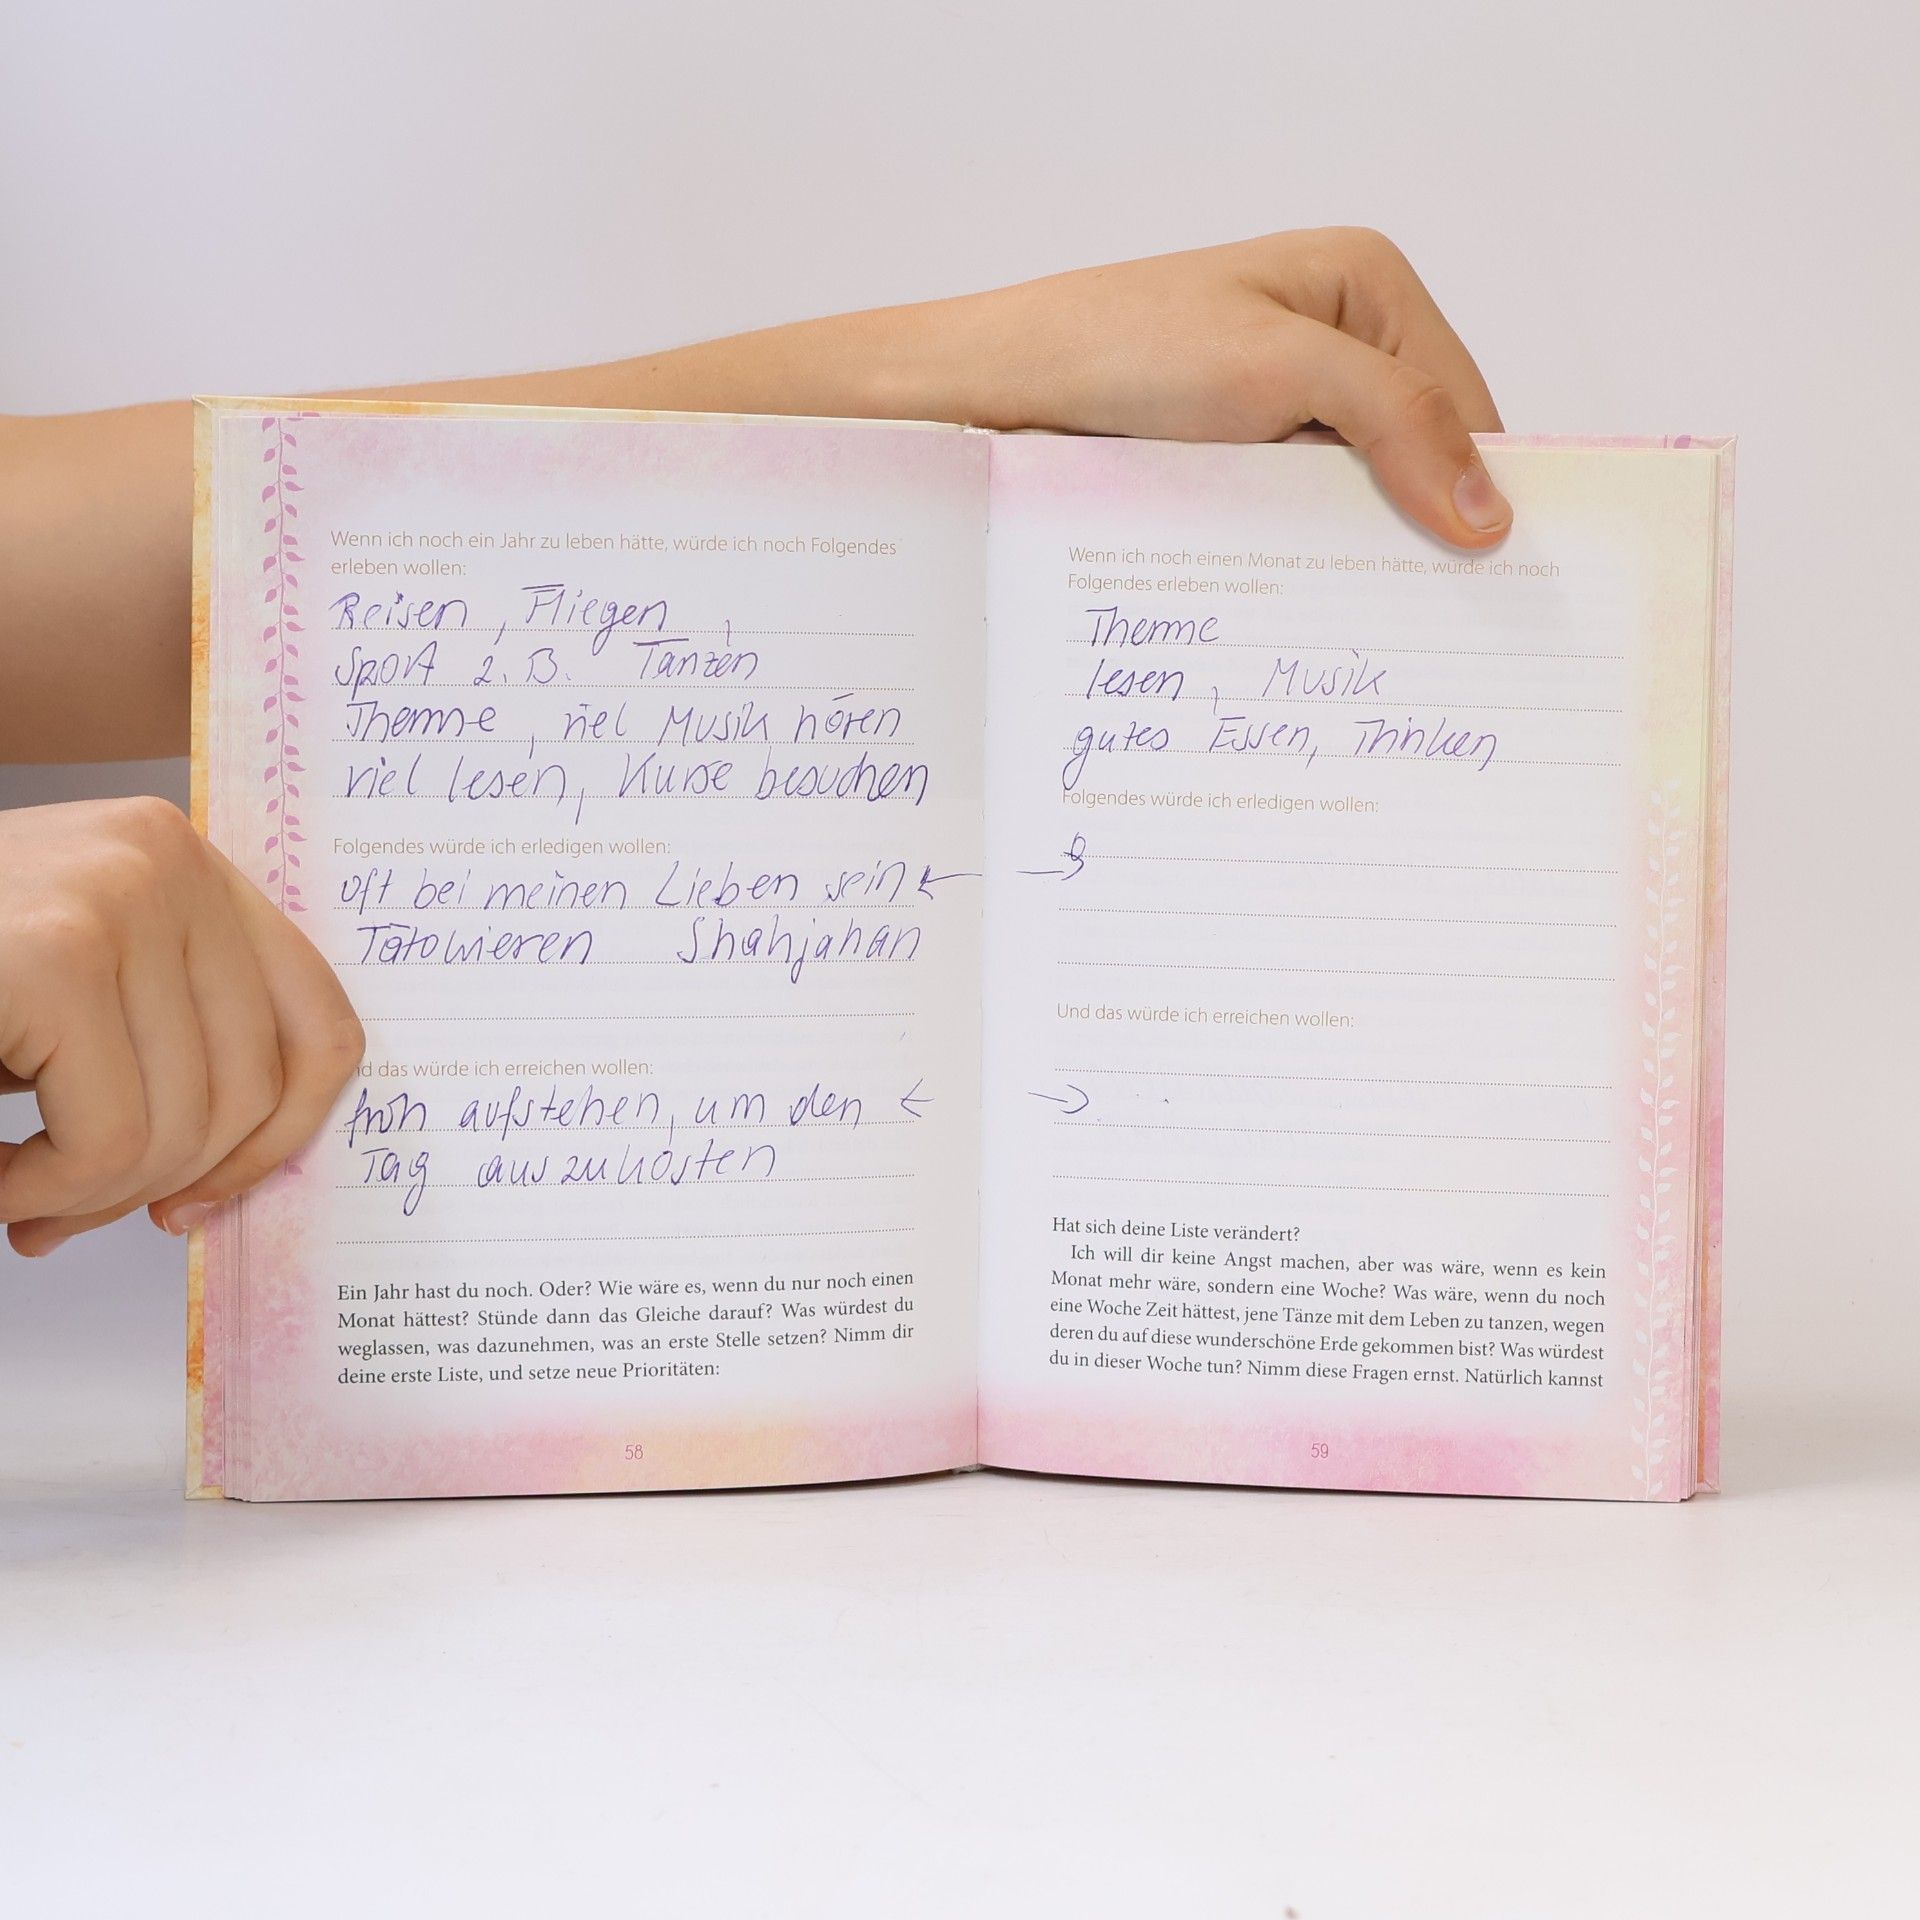 Wenn ich noch ein Jahr zu leben hätte, würde ich noch Folgendes
erleben wollen:
Reisen, Fliegen,
Sport z. B. Tanzen
Therme, viel Musik hören
viel lesen, Kurse besuchen
Folgendes würde ich erledigen wollen:
oft bei meinen Lieben sein ←
Tätowieren Shahjahan
nd das würde ich erreichen wollen:
früh aufstehen, um den ←
Tag auszukosten
Ein Jahr hast du noch. Oder? Wie wäre es, wenn du nur noch einen
Monat hättest? Stünde dann das Gleiche darauf? Was würdest du
weglassen, was dazunehmen, was an erste Stelle setzen? Nimm dir
deine erste Liste, und setze neue Prioritäten:
58
Wenn ich noch einen Monat zu leben hätte, würde ich noch
Folgendes erleben wollen:
Therme
lesen, Musik
gutes Essen, Trinken
Folgendes würde ich erledigen wollen:
Und das würde ich erreichen wollen:
Hat sich deine Liste verändert?
Ich will dir keine Angst machen, aber was wäre, wenn es kein
Monat mehr wäre, sondern eine Woche? Was wäre, wenn du noch
eine Woche Zeit hättest, jene Tänze mit dem Leben zu tanzen, wegen
deren du auf diese wunderschöne Erde gekommen bist? Was würdest
du in dieser Woche tun? Nimm diese Fragen ernst. Natürlich kannst
59